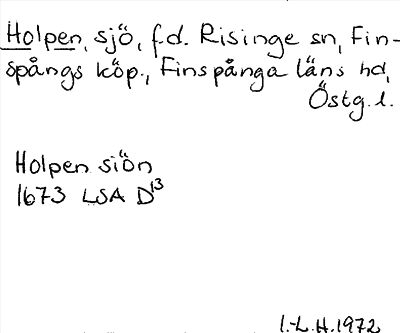 Holpen, sjö, f.d. Risinge sn, Fin-
spångs köp., Finspånga läns hd,
Östg. l.
Holpen siön
1673 LSA D13
I.-L.H.1972